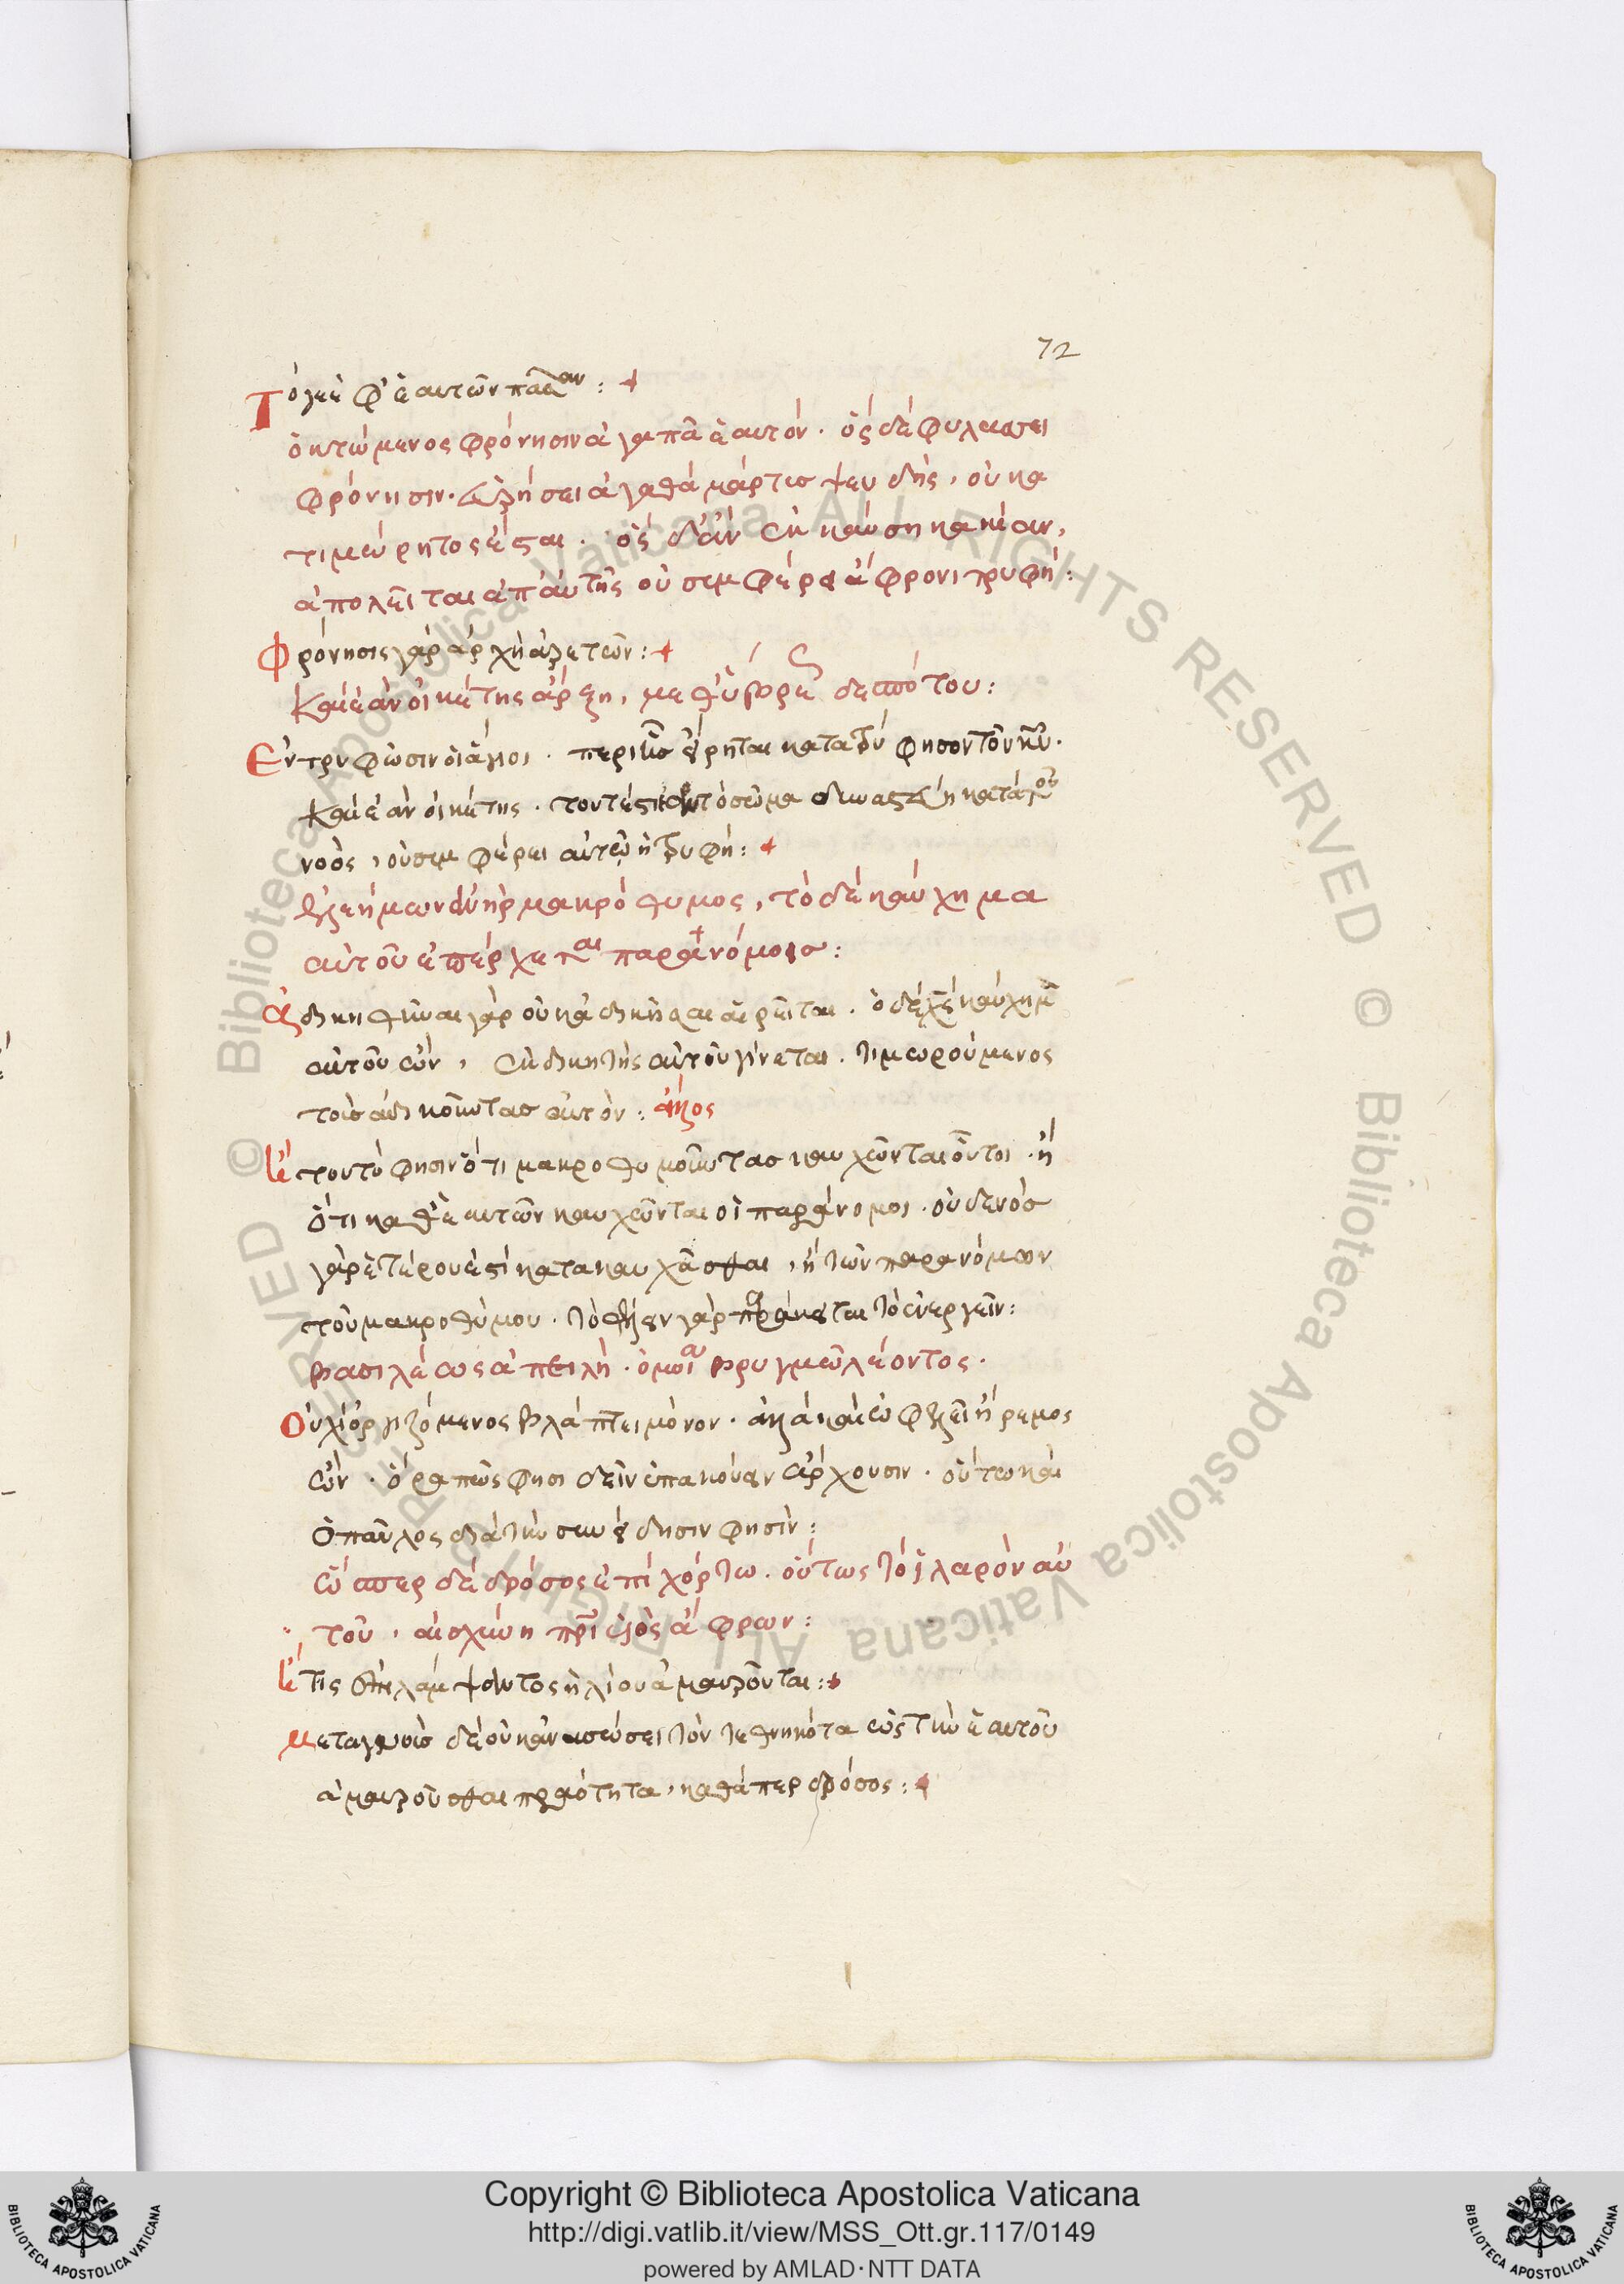 72
Τό γε ἐφ' ἑαυτῶν :+
ὁ κτώμενος φρόνησιν ἀγαπᾶ ἑαυτόν. ὃς δὲ φυλάσσει
φρόνησιν. εὑρήσει ἀγαθά μάρτυς ψευδὴς, οὐκ ἀ
τιμώρητος ἔσται. ὃς δ' ἂν ἐκκαύση κακίαν,
ἀπολεῖται ἀπ' αὐτῆς οὐ συμφέρει ἄφρονι τρυφή:
Φρόνησις γὰρ ἀρχὴ ἀρετῶν:+
Καὶ ἐὰν οἰκέτης ἄρξη, μεθ' ὕβρεως δεσπότου:
Ἐντρυφῶσιν οἱ ἅγιοι. περὶ ἧς εἴρηται κατατρύφησον τοῦ κυ.
Καὶ ἐὰν οἰκέτης. τουτέστι τὸ σῶμα δυναστεύη κατὰ τοῦ
νοὸς, οὐ συμφέρει αὐτῶ ἡ τρυφή:+
Ἐλεήμων ἀνὴρ μακρόθυμος, τὸ δὲ καύχημα
αὐτοῦ ἐπέρχεται παρανόμοις:
Ἀδικηθῆναι γὰρ οὐκ ἀδικῆσαι αἱρεῖται. ὁ δὲ χς καύχημα
αὐτοῦ ὢν, ἐκδικητὴς αὐτοῦ γίνεται. τιμωρούμενος
τοὺς ἀδικοῦντας αὐτόν: ἄλλος
ἢ τοῦτο φησὶν ὅτι μακροθυμοῦντας καυχῶνται οὗτοι. ἢ
ὅτι καθ' ἑαυτῶν καυχῶνται οἱ παράνομοι. οὐδενὸς
γὰρ ἑτέρου ἐστὶ κατακαυχᾶσθαι, ἢ τῶν παρανόμων
τοῦ μακροθύμου. τὸ γὰρ τὸ ἐνεργεῖν:
βασιλέως ἀπειλὴ. ὁμοία βρυγμῶ λέοντος.
Οὐχὶ ὀργιζόμενος βλάπτει μόνον. ἀλλὰ καὶ ὠφελεῖ ἤρεμος
ὤν. ὅρα πῶς φησι δεῖν ὑπακούειν ἄρχουσιν. οὕτω καὶ
ὁ παῦλος διὰ τὴν συνείδησιν φησὶν:
ὥσπερ δὲ δρόσος ἐπὶ χόρτω. οὕτως τὸ ἱλαρὸν αὐ
τοῦ, αἰσχύνη πρὶ υἱὸς ἄφρων:
ἥτις ἐπιλάμψαντος ἡλίου ἀμαυροῦται:+
Μεταγνοὺς δὲ οὐκ ἀνασώσει τὸν τεθνηκότα ὡς τὴν ἑαυτοῦ
ἀμαυροῦσθαι πραότητα, καθάπερ δρόσος:+
Copyright © Biblioteca Apostolica Vaticana
http://digi.vatlib.it/view/MSS_Ott.gr.117/0149
powered by AMLAD·NTT DATA
BIBLIOTECA APOSTOLICA VATICANA
BIBLIOTECA APOSTOLICA VATICANA
© Biblioteca Apostolica Vaticana ALL RIGHTS RESERVED
© Biblioteca Apostolica Vaticana ALL RIGHTS RESERVED